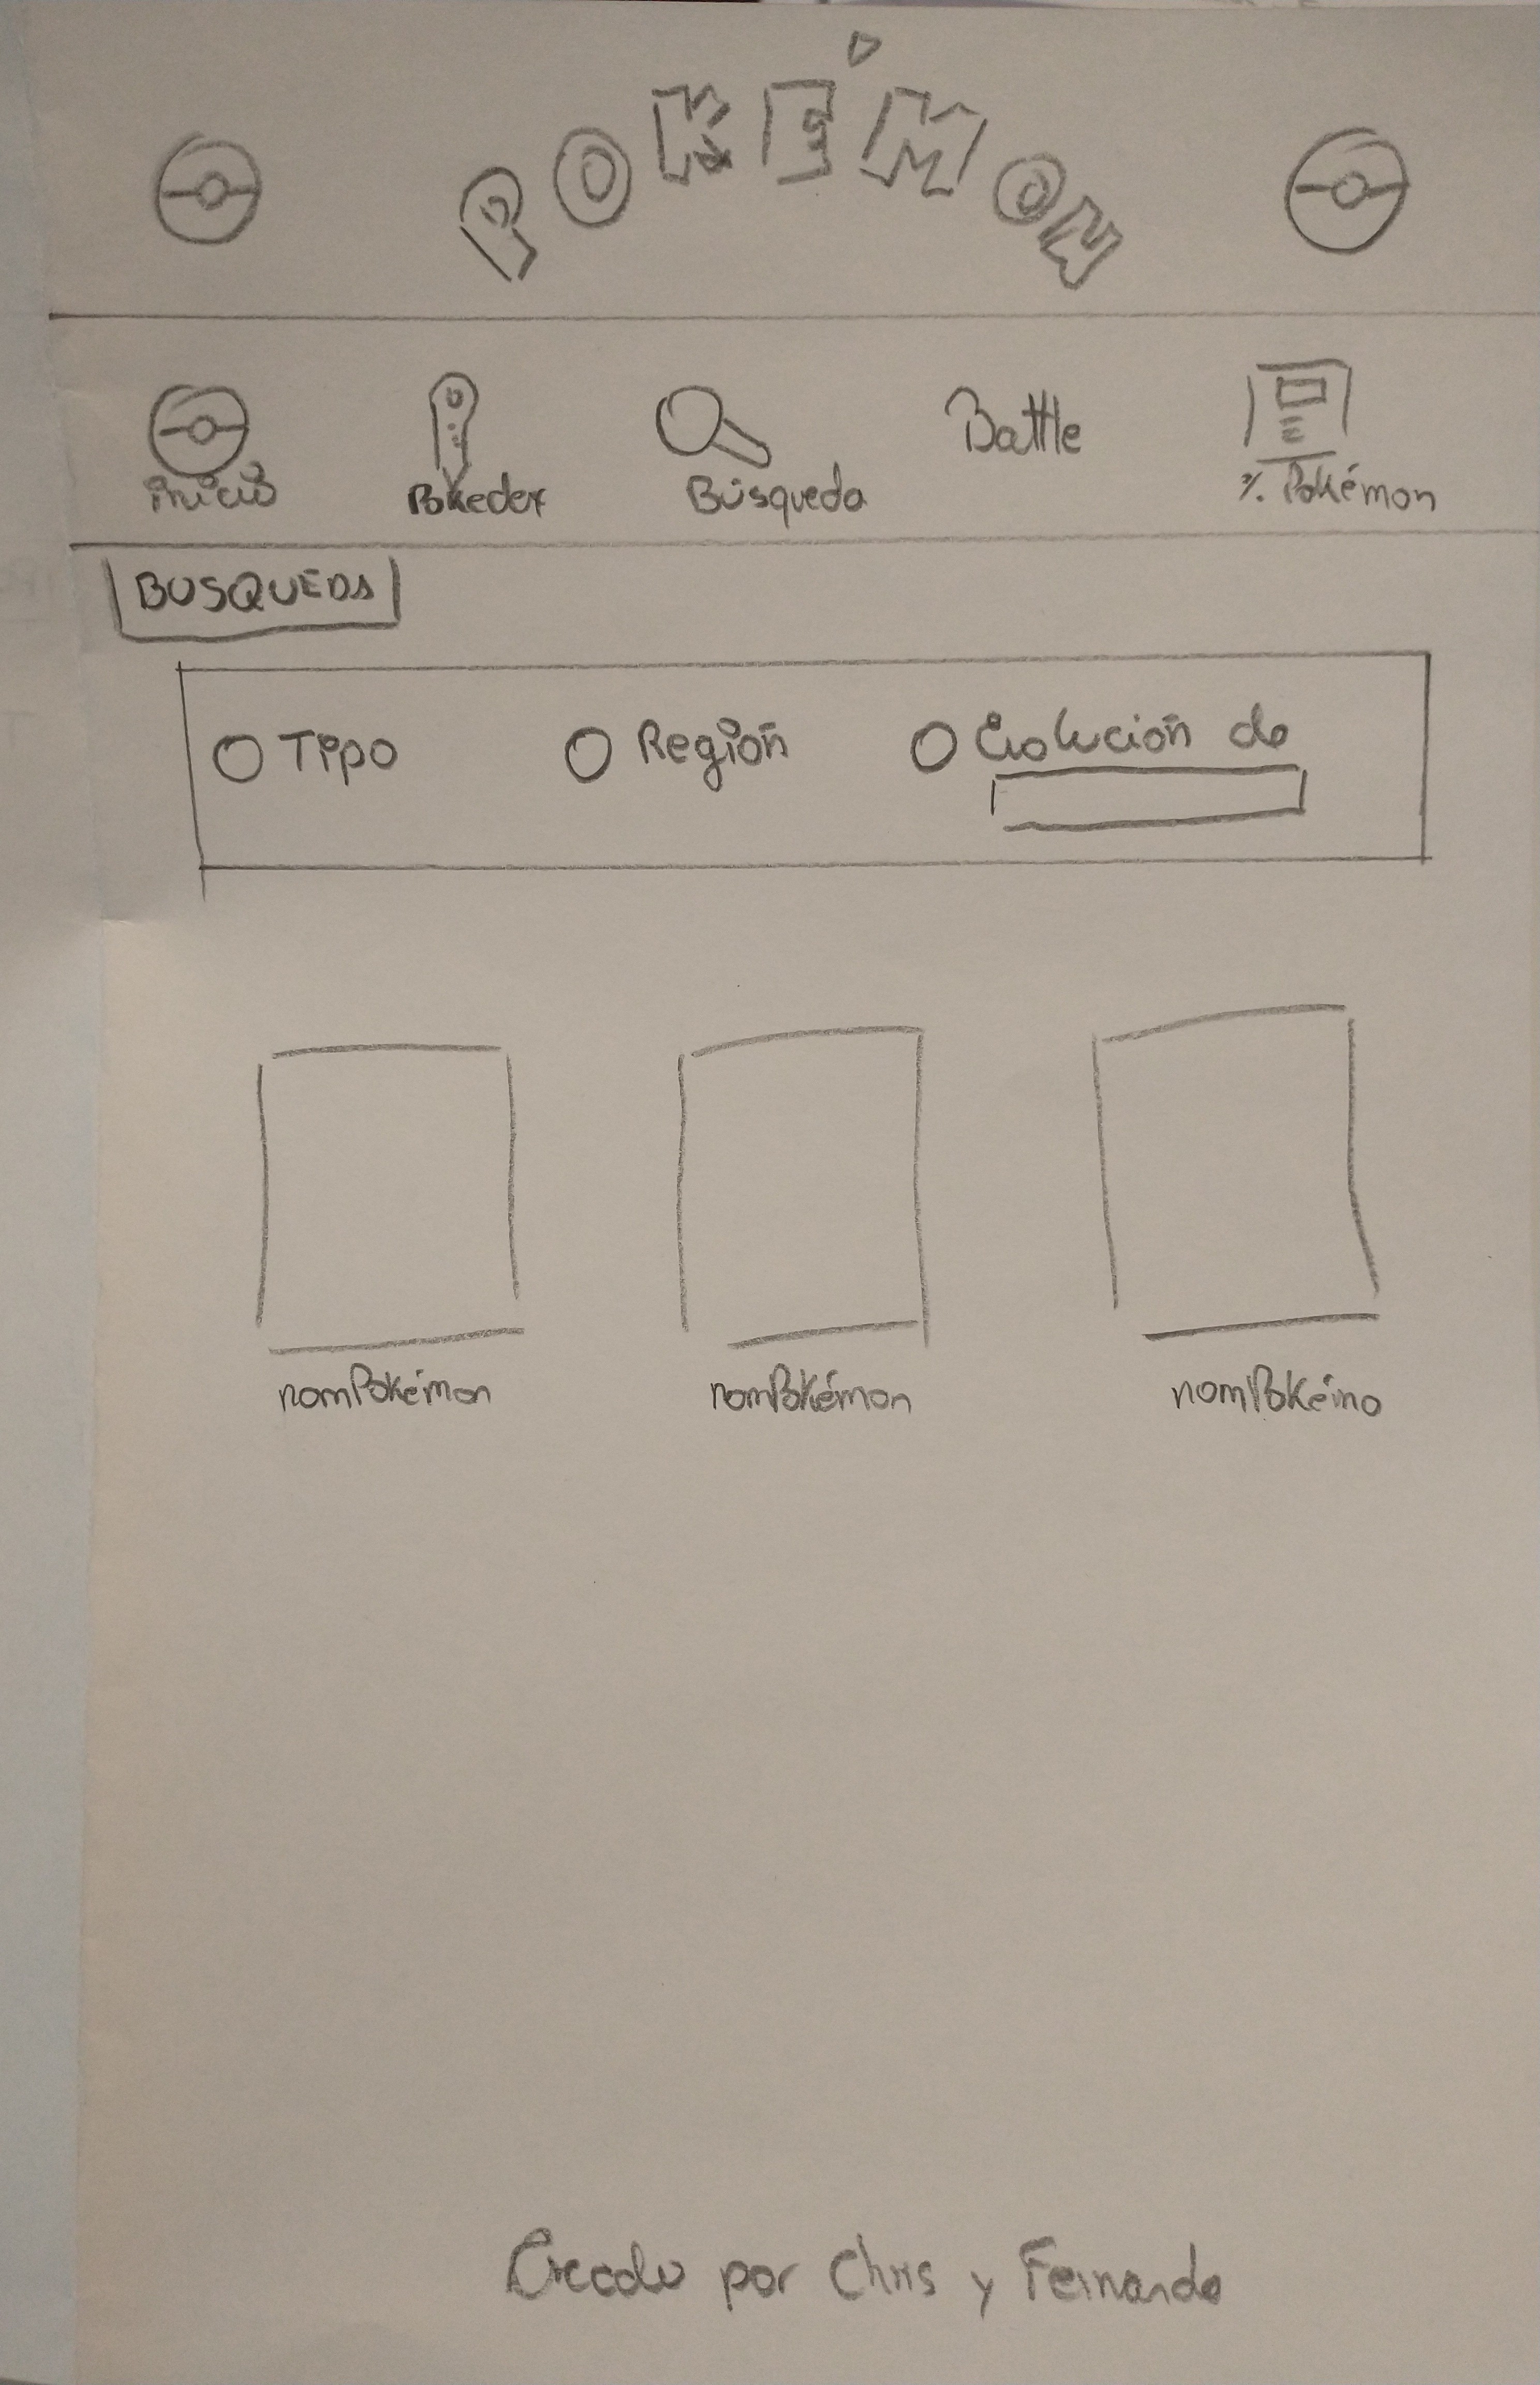 POKÉMON
inicio Pokedex Búsqueda Battle % Pokémon
BUSQUEDA
Tipo Región Evolución de
nomPokémon nomPokémon nomPokémo
Creado por Chris y Fernando